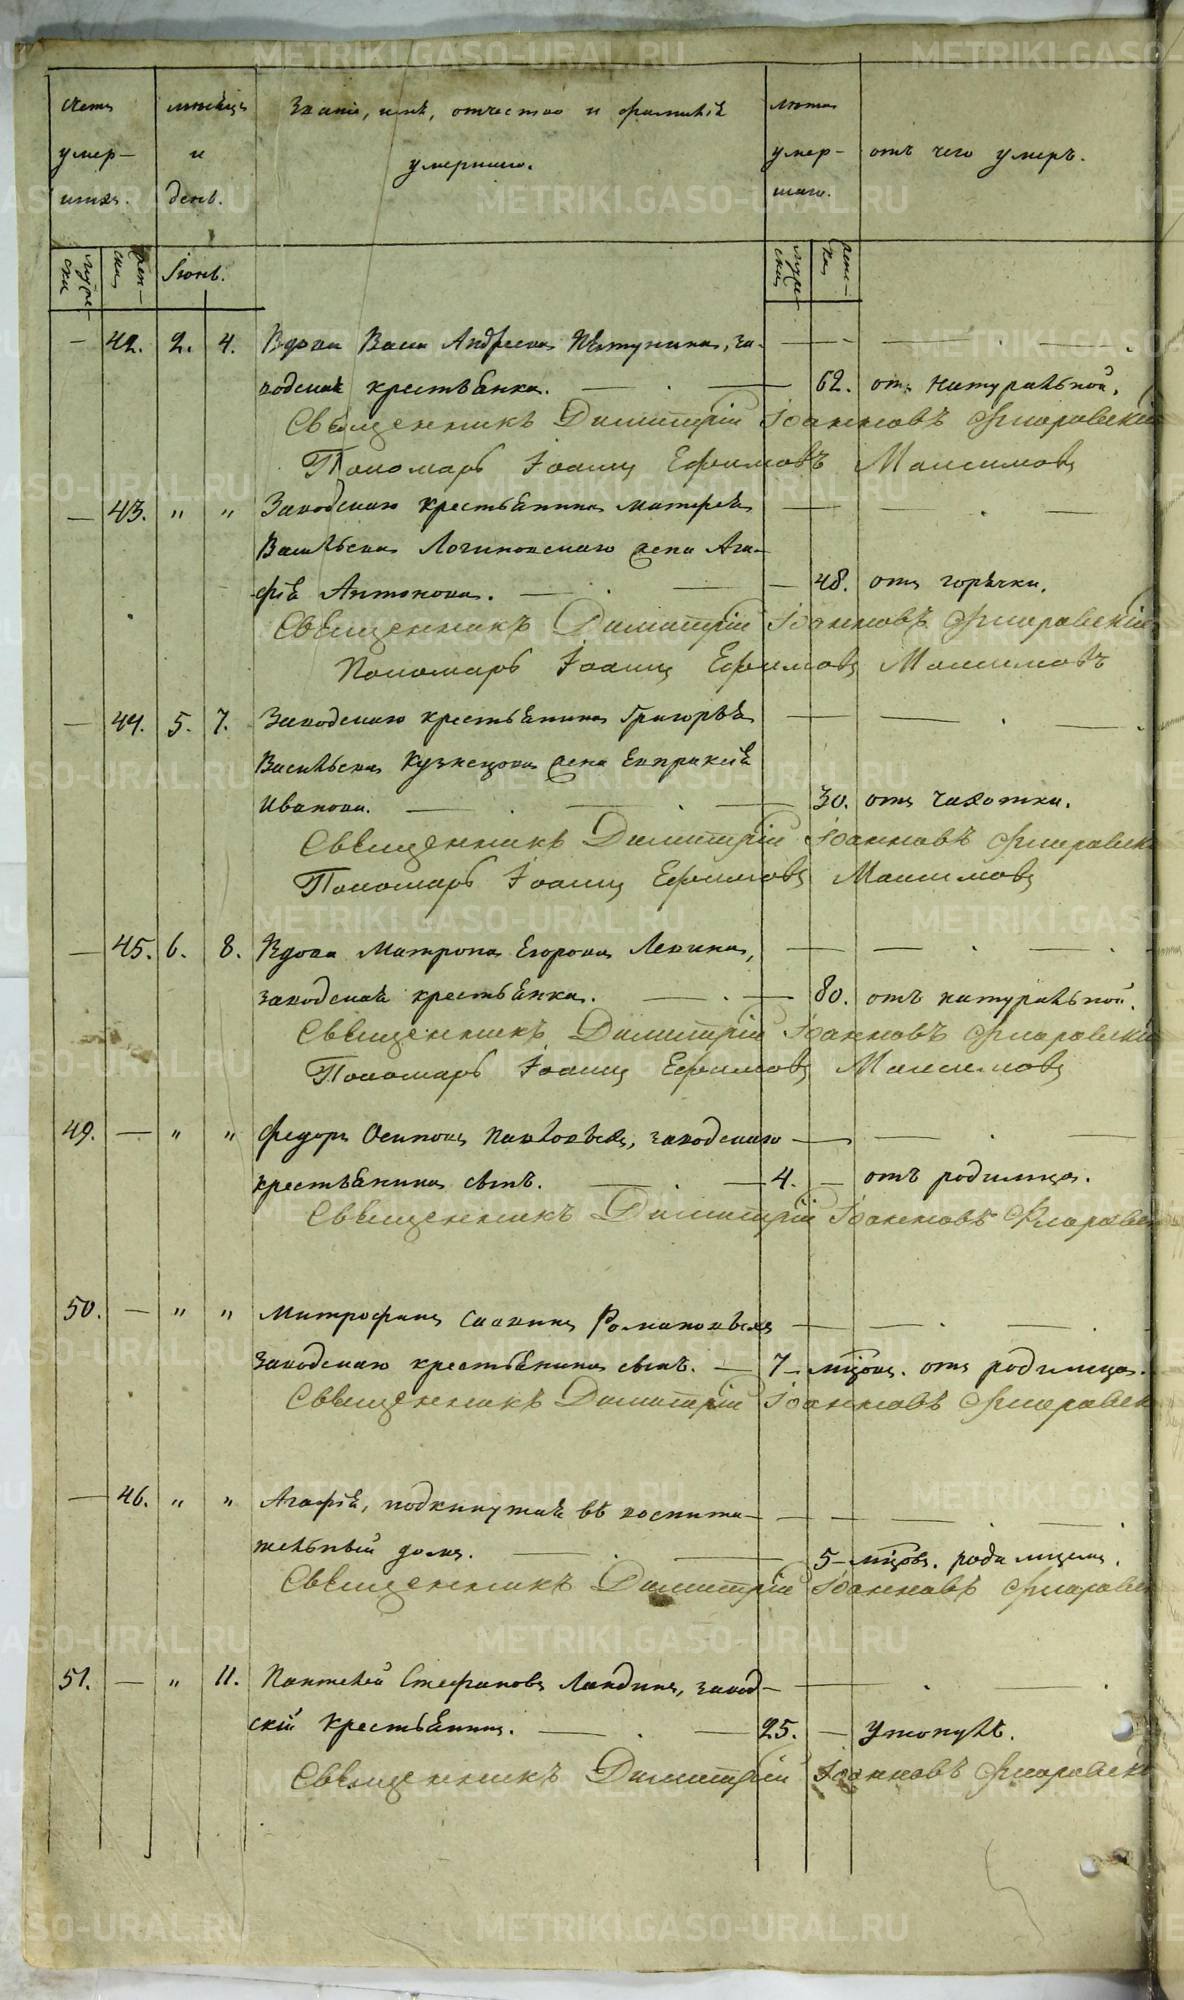 Счетъ мѣсяцъ Званіе, имя, отчество и фамилія лѣта
умер- и умершаго. умер- отъ чего умеръ.
шихъ. день. шаго.
муже- ска жен- ска Іюнь. муже- ска жен- ска
— 42. 2. 4. Вдова Васса Андреева Пѣтунина, за-
водская крестьянка. 62. отъ натуральной.
Священникъ Димитрій Іоанновъ Флоравскій
Пономарь Іоаннъ Ефимовъ Максимовъ
— 43. " " Заводскаго крестьянина Матфея
Васильева Логиновскаго жена Ага-
фія Антонова. 48. отъ горячки.
Священникъ Димитрій Іоанновъ Флоравскій
Пономарь Іоаннъ Ефимовъ Максимовъ
— 44. 5. 7. Заводскаго крестьянина Григорья
Васильева Кузнецова жена Евпраксія
Иванова. 30. отъ чахотки.
Священникъ Димитрій Іоанновъ Флоравск
Пономарь Іоаннъ Ефимовъ Максимовъ
— 45. 6. 8. Вдова Матрона Егорова Левина,
заводская крестьянка. 80. отъ натуральной.
Священникъ Димитрій Іоанновъ Флоравскій
Пономарь Іоаннъ Ефимовъ Максимовъ
49. — " " Федоръ Осиповъ Павловыхъ, заводскаго
крестьянина сынъ. 4. — отъ родимца.
Священникъ Димитрій Іоанновъ Флоравск
50. — " " Митрофанъ Саввинъ Романовыхъ
заводскаго крестьянина сынъ. — 7 – мцовъ. отъ родимца.
Священникъ Димитрій Іоанновъ Флоравск
— 46. " " Агафія, подкинутая въ воспита-
тельный домъ. 5 – мцовъ. родимцемъ.
Священникъ Димитрій Іоанновъ Флоравск
51. — " 11. Пантелей Стефановъ Ландинъ, завод-
скій крестьянинъ. 25. — Утонулъ.
Священникъ Димитрій Іоанновъ Флоравск